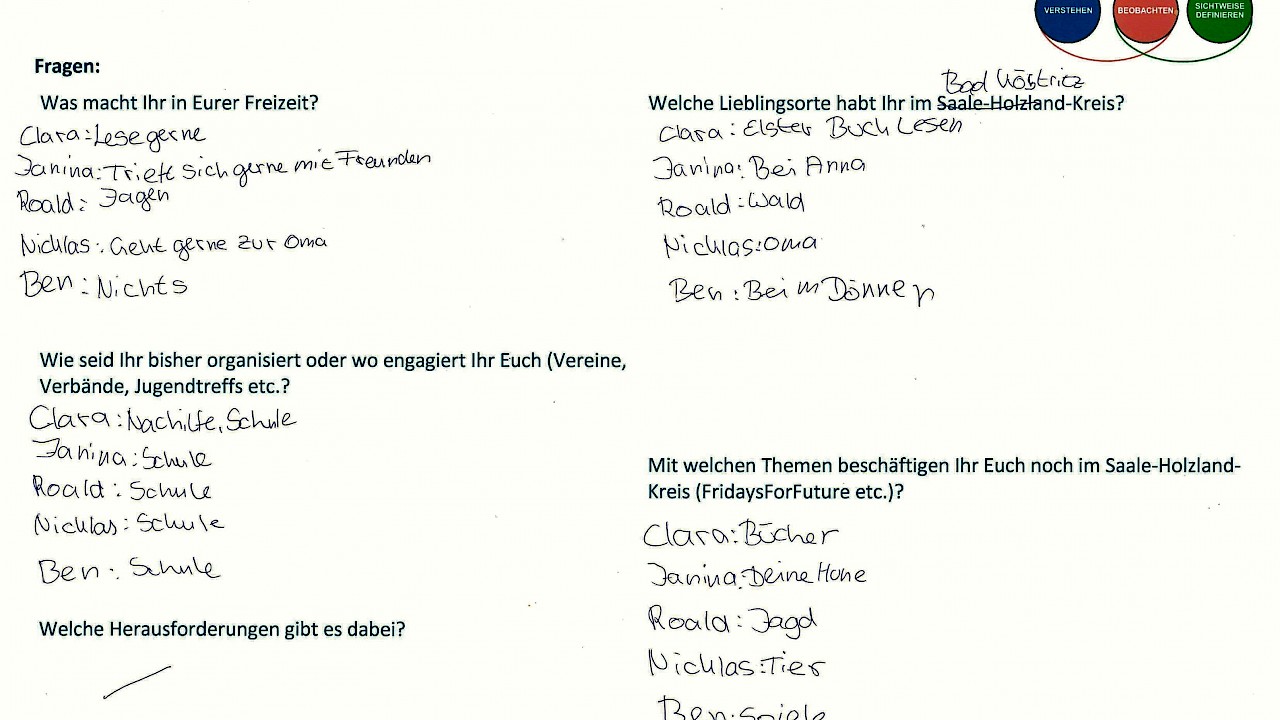 VERSTEHEN
BEOBACHTEN
SICHTWEISE
DEFINIEREN
Fragen:
Was macht Ihr in Eurer Freizeit?
Clara: Lese gerne
Janina: Trieft sich gerne mit Freunden
Roald: Jagen
Nicklas: Geht gerne zur Oma
Ben: Nichts
Wie seid Ihr bisher organisiert oder wo engagiert Ihr Euch (Vereine,
Verbände, Jugendtreffs etc.?
Clara: Nachilfe, Schule
Janina: Schule
Roald: Schule
Nicklas: Schule
Ben: Schule
Welche Herausforderungen gibt es dabei?
Bad Köstritz
Welche Lieblingsorte habt Ihr im Saale-Holzland-Kreis?
Clara: Elster Buch Lesen
Janina: Bei Anna
Roald: Wald
Nicklas: Oma
Ben: Beim Dönner
Mit welchen Themen beschäftigen Ihr Euch noch im Saale-Holzland-
Kreis (FridaysForFuture etc.)?
Clara: Bücher
Janina: Deine
Roald: Jagd
Nicklas: Tier
Ben: Spiele